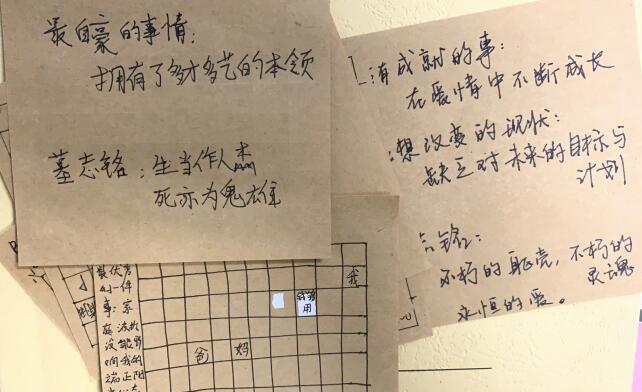 最自豪的事情:
拥有了多才多艺的本领
墓志铭:生当作人杰
死亦为鬼雄
有成就的事:
在爱情中不断成长
想改变的现状:
缺乏对未来的目标与
计划
铭:
不朽的躯壳,不朽的
灵魂
永恒的爱。
我
用
爸 妈
一件
事:家
庭
没能
响我的